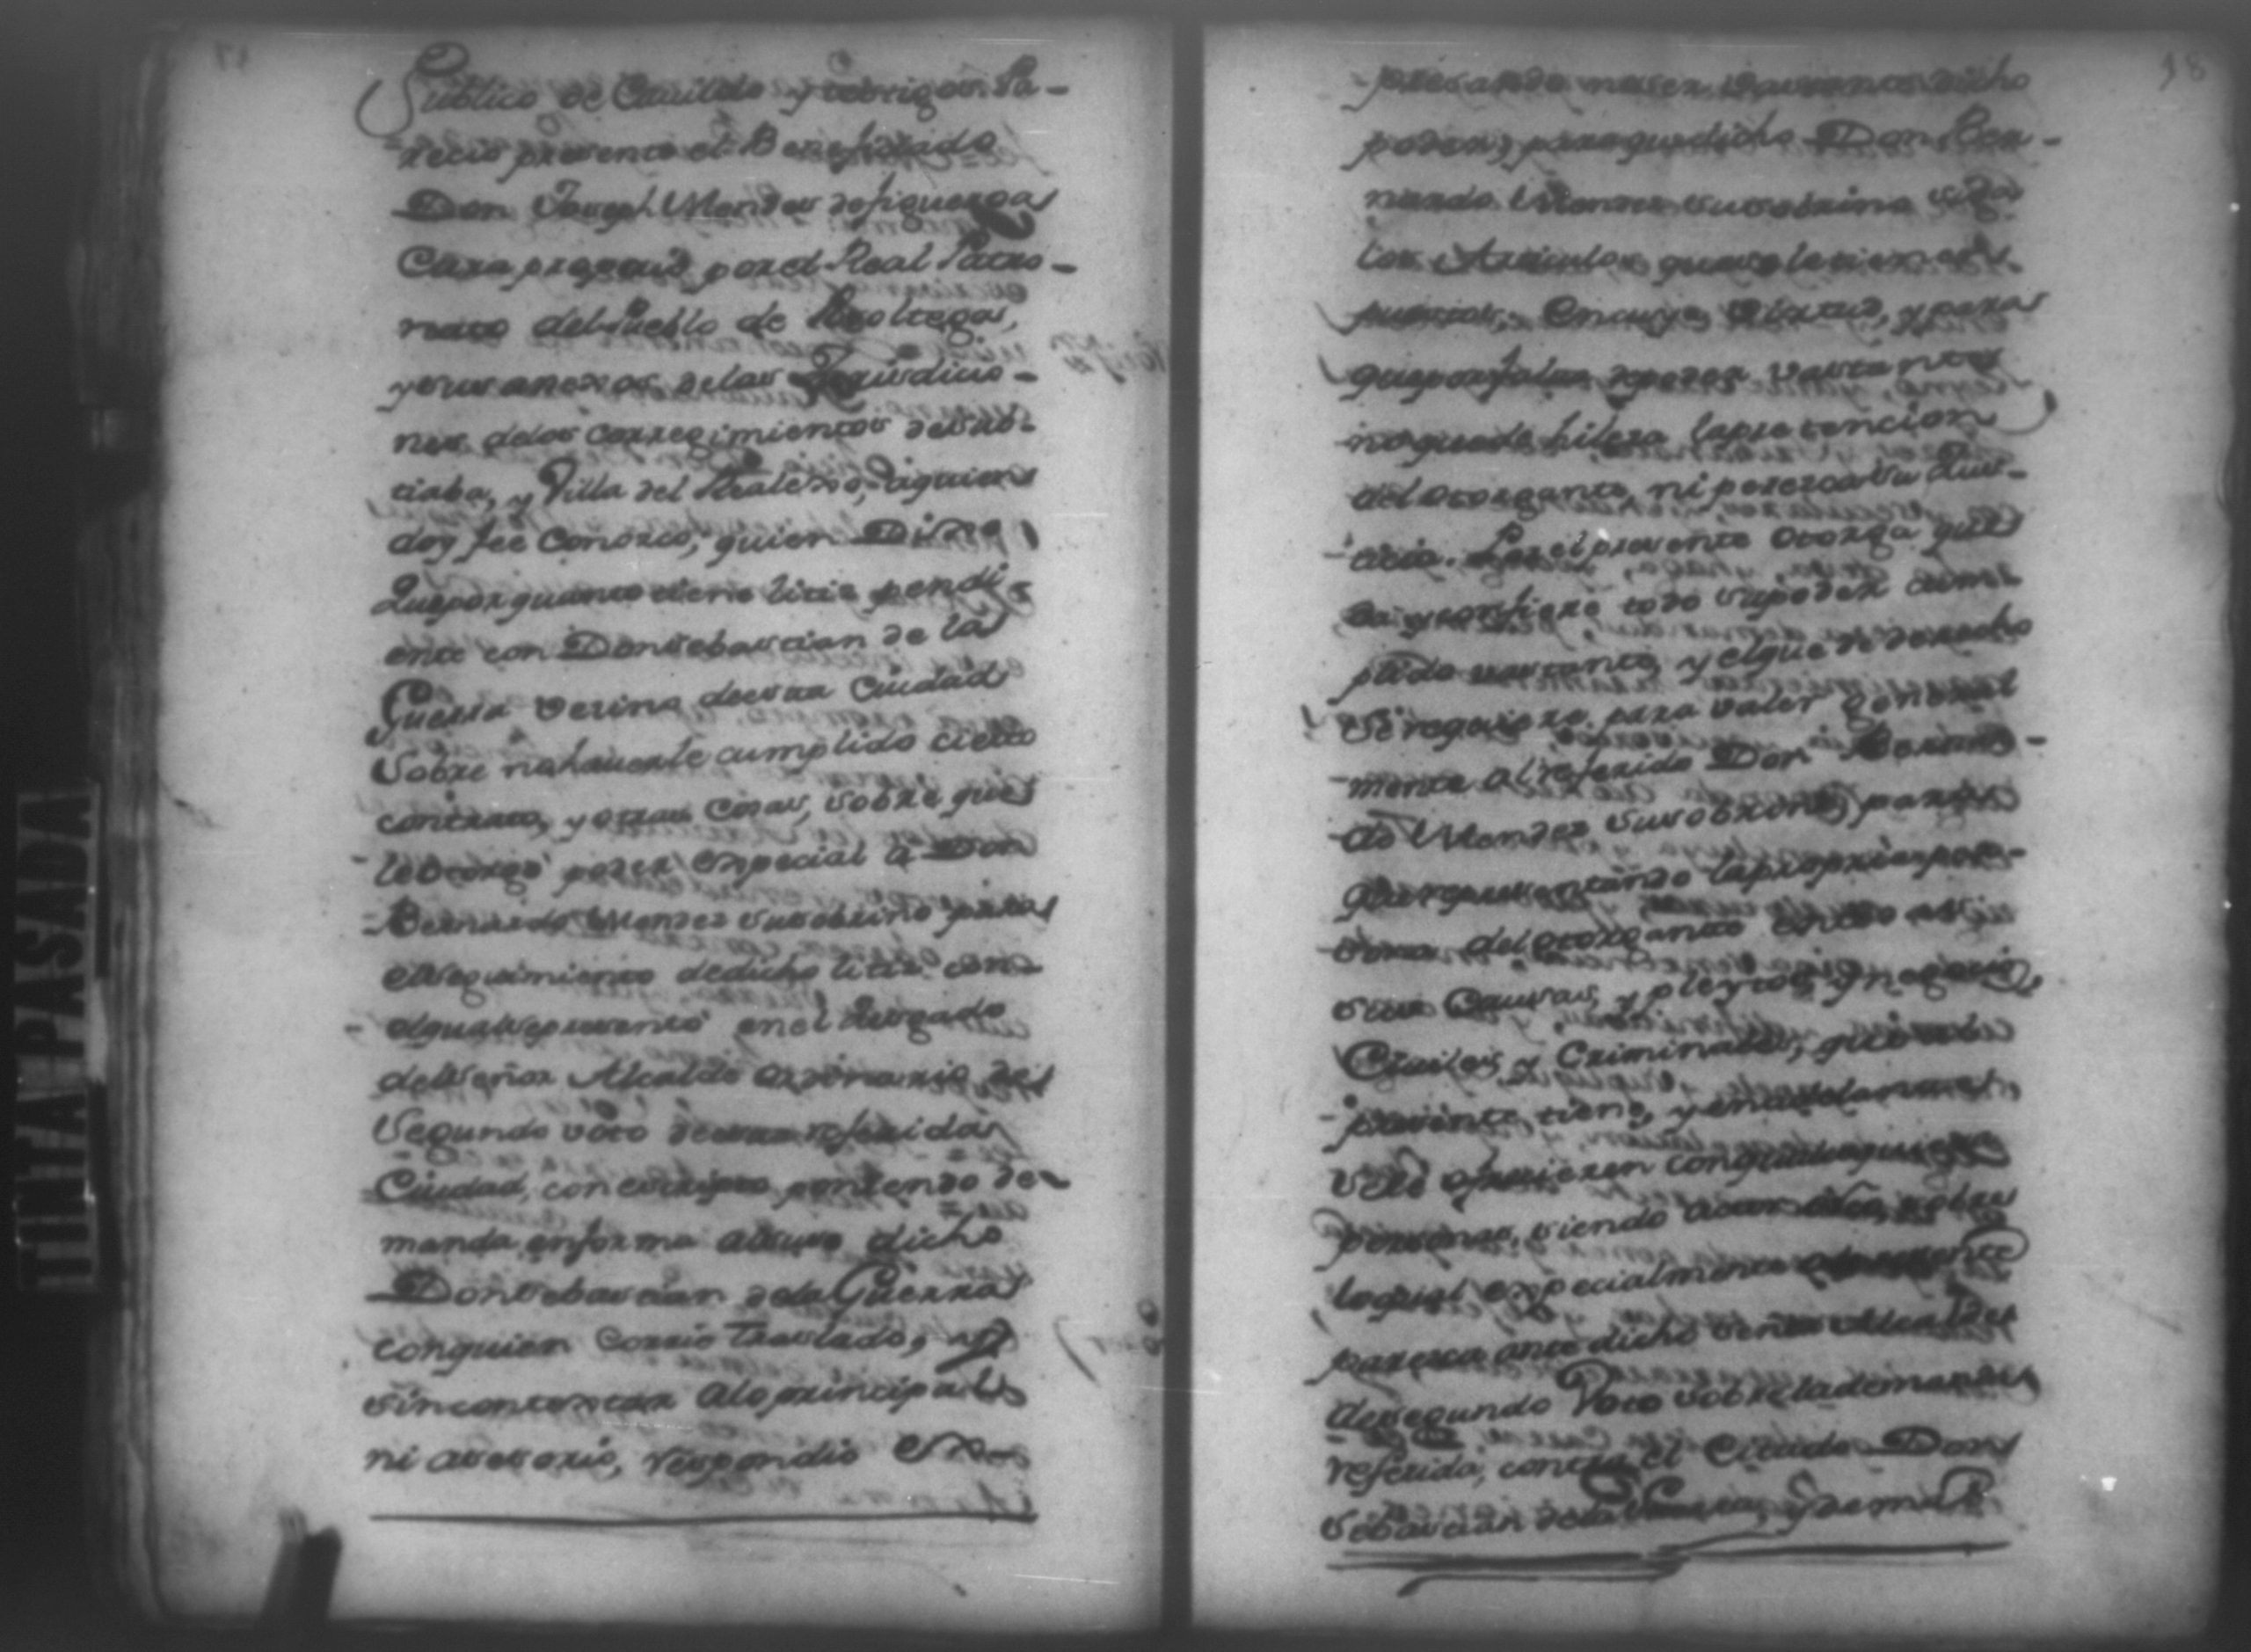 Publico de Cavildo y testigos Pa-
recio presente el Benefisiado
Don Joseph Mendes de figueroa
Cura propio por el Real Patro-
nato del Pueblo de Posoltega,
y sus anexos de las Jurisdicio-
nes delos Corregimientos de sub-
tiaba, y Villa del Realexo, aquien
doy fee Conosco, quien Dixo
Que por quanto tiene litis pendi-
ente con Don sebastian de la
Guerra vezino de esta Ciudad
Sobre no haverle cumplido cierto
contrato, y otras Cosas, sobre que
le otorgó poder Especial a Don
Bernardo Mendez su sobrino para
el seguimiento de dicho litis con
el qual se presentó en el Jusgado
del Señor Alcalde ordinario de
Segundo voto de esta referida
Ciudad, con escripto poniendo de-
manda en forma al suso dicho
Don sebastian de la Guerra
con quien Corrio Traslado, y
sin contestar alo principal
ni acesorio, respondio
18
presando no ser bastante dicho
poder, y para que dicho Don Ber-
nardo Mendez su sobrino siga
los Articulos que se le tienen
puestos, En cuya Virtud, y para
que por falta de poder bastante
no quede ilusa la pretencion
del otorgante, ni peresca su Jus-
ticia. Por el presente otorga que
da y confiere todo su poder cum-
plido bastante, y el que de derecho
se requiere para valer general
mente al referido Don Bernar-
do Mendez su sobrino, para
que representando la propria per-
sona del otorgante en todas
sus Causas, y pleytos, y negocios,
Civiles, y Criminales, que al
presente tiene, y en adelante
se le ofrecieren con qualesquiera
personas, siendo actor o Reo, sobre
lo qual especialmente
paresca ante dicho señor Alcalde
de segundo Voto sobre la demanda
referida, contra el Citado Don
sebastian de la Guerra, y demas
TINTA PASADA